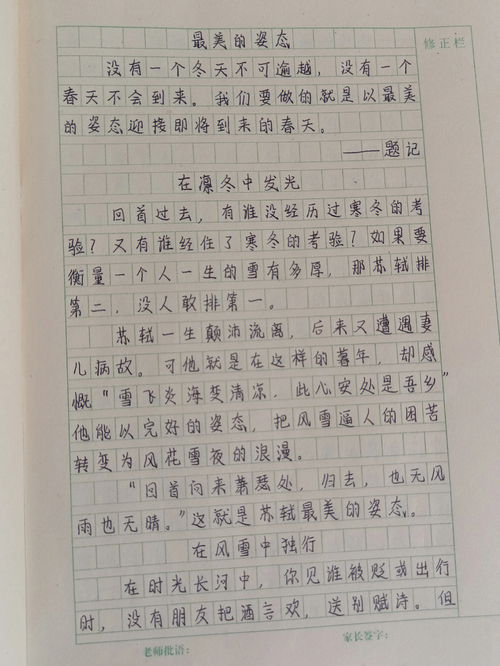 最美的姿态
修正栏
没有一个冬天不可逾越，没有一个
春天不会到来。我们要做的就是以最美
的姿态迎接即将到来的春天。
——题记
在凛冬中发光
回首过去，有谁没经历过寒冬的考
验？又有谁经住了寒冬的考验？如果要
衡量一个人一生的雪有多厚，那苏轼排
第二，没人敢排第一。
苏轼一生颠沛流离，后来又遭遇妻
儿病故。可他就是在这样的暮年，却感
慨“雪飞炎海变清凉，此心安处是吾乡”
他能以完好的姿态，把风雪逼人的困苦
转变为风花雪夜的浪漫。
“回首向来萧瑟处，归去，也无风
雨也无晴。”这就是苏轼最美的姿态。
在风雪中独行
在时光长河中，你见谁被贬或出行
时，没有朋友把酒言欢，送别赋诗。但
老师批语：
家长签字：